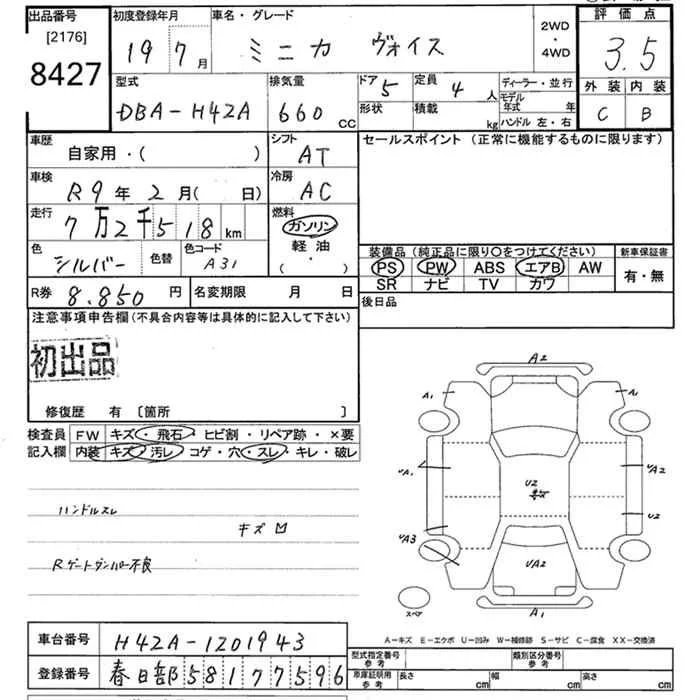 出品番号 初度登録年月 車名・グレード 評価点
[2176]
8427
19 7月 ミニカ ヴォイス 2WD・4WD 3.5
型式 排気量 ドア 5 定員 4人 ディーラー・並行 外装 内装
DBA-H42A 660cc 形状 積載 kg モデル年式 年 ハンドル 左・右 C B
車歴 シフト セールスポイント (正常に機能するものに限ります)
自家用・( ) AT
車検 冷房
R9年2月( 日) AC
走行 燃料
7万2千518km ガソリン
軽油
( ・ )
色 色替 色コード 装備品 (純正品に限り○をつけてください) 新車保証書
シルバー A31 PS PW ABS エアB AW 有・無
SR ナビ TV カワ
R券 8.850円 名変期限 月 日 後日品
注意事項申告欄(不具合内容等は具体的に記入して下さい)
初出品
修復歴 有 [箇所 ]
検査員 FW キズ・飛石・ヒビ割・リペア跡・×要
記入欄 内装 キズ・汚レ・コゲ・穴・スレ・キレ・破レ
ハンドルスレ
キズ凹
Rゲートダンパー不良
A2
A1 A1
A1 A2
U2
U2
A3
UA2
スペア A1
A-キズ E-エクボ U-凹み W-補修跡 S-サビ C-腐食 XX-交換済
車台番号 H42A-1201943
型式指定番号 参考 類別区分番号 参考
登録番号 春日部581 77596
車庫証明用 参考 長さ cm 幅 cm 高さ cm